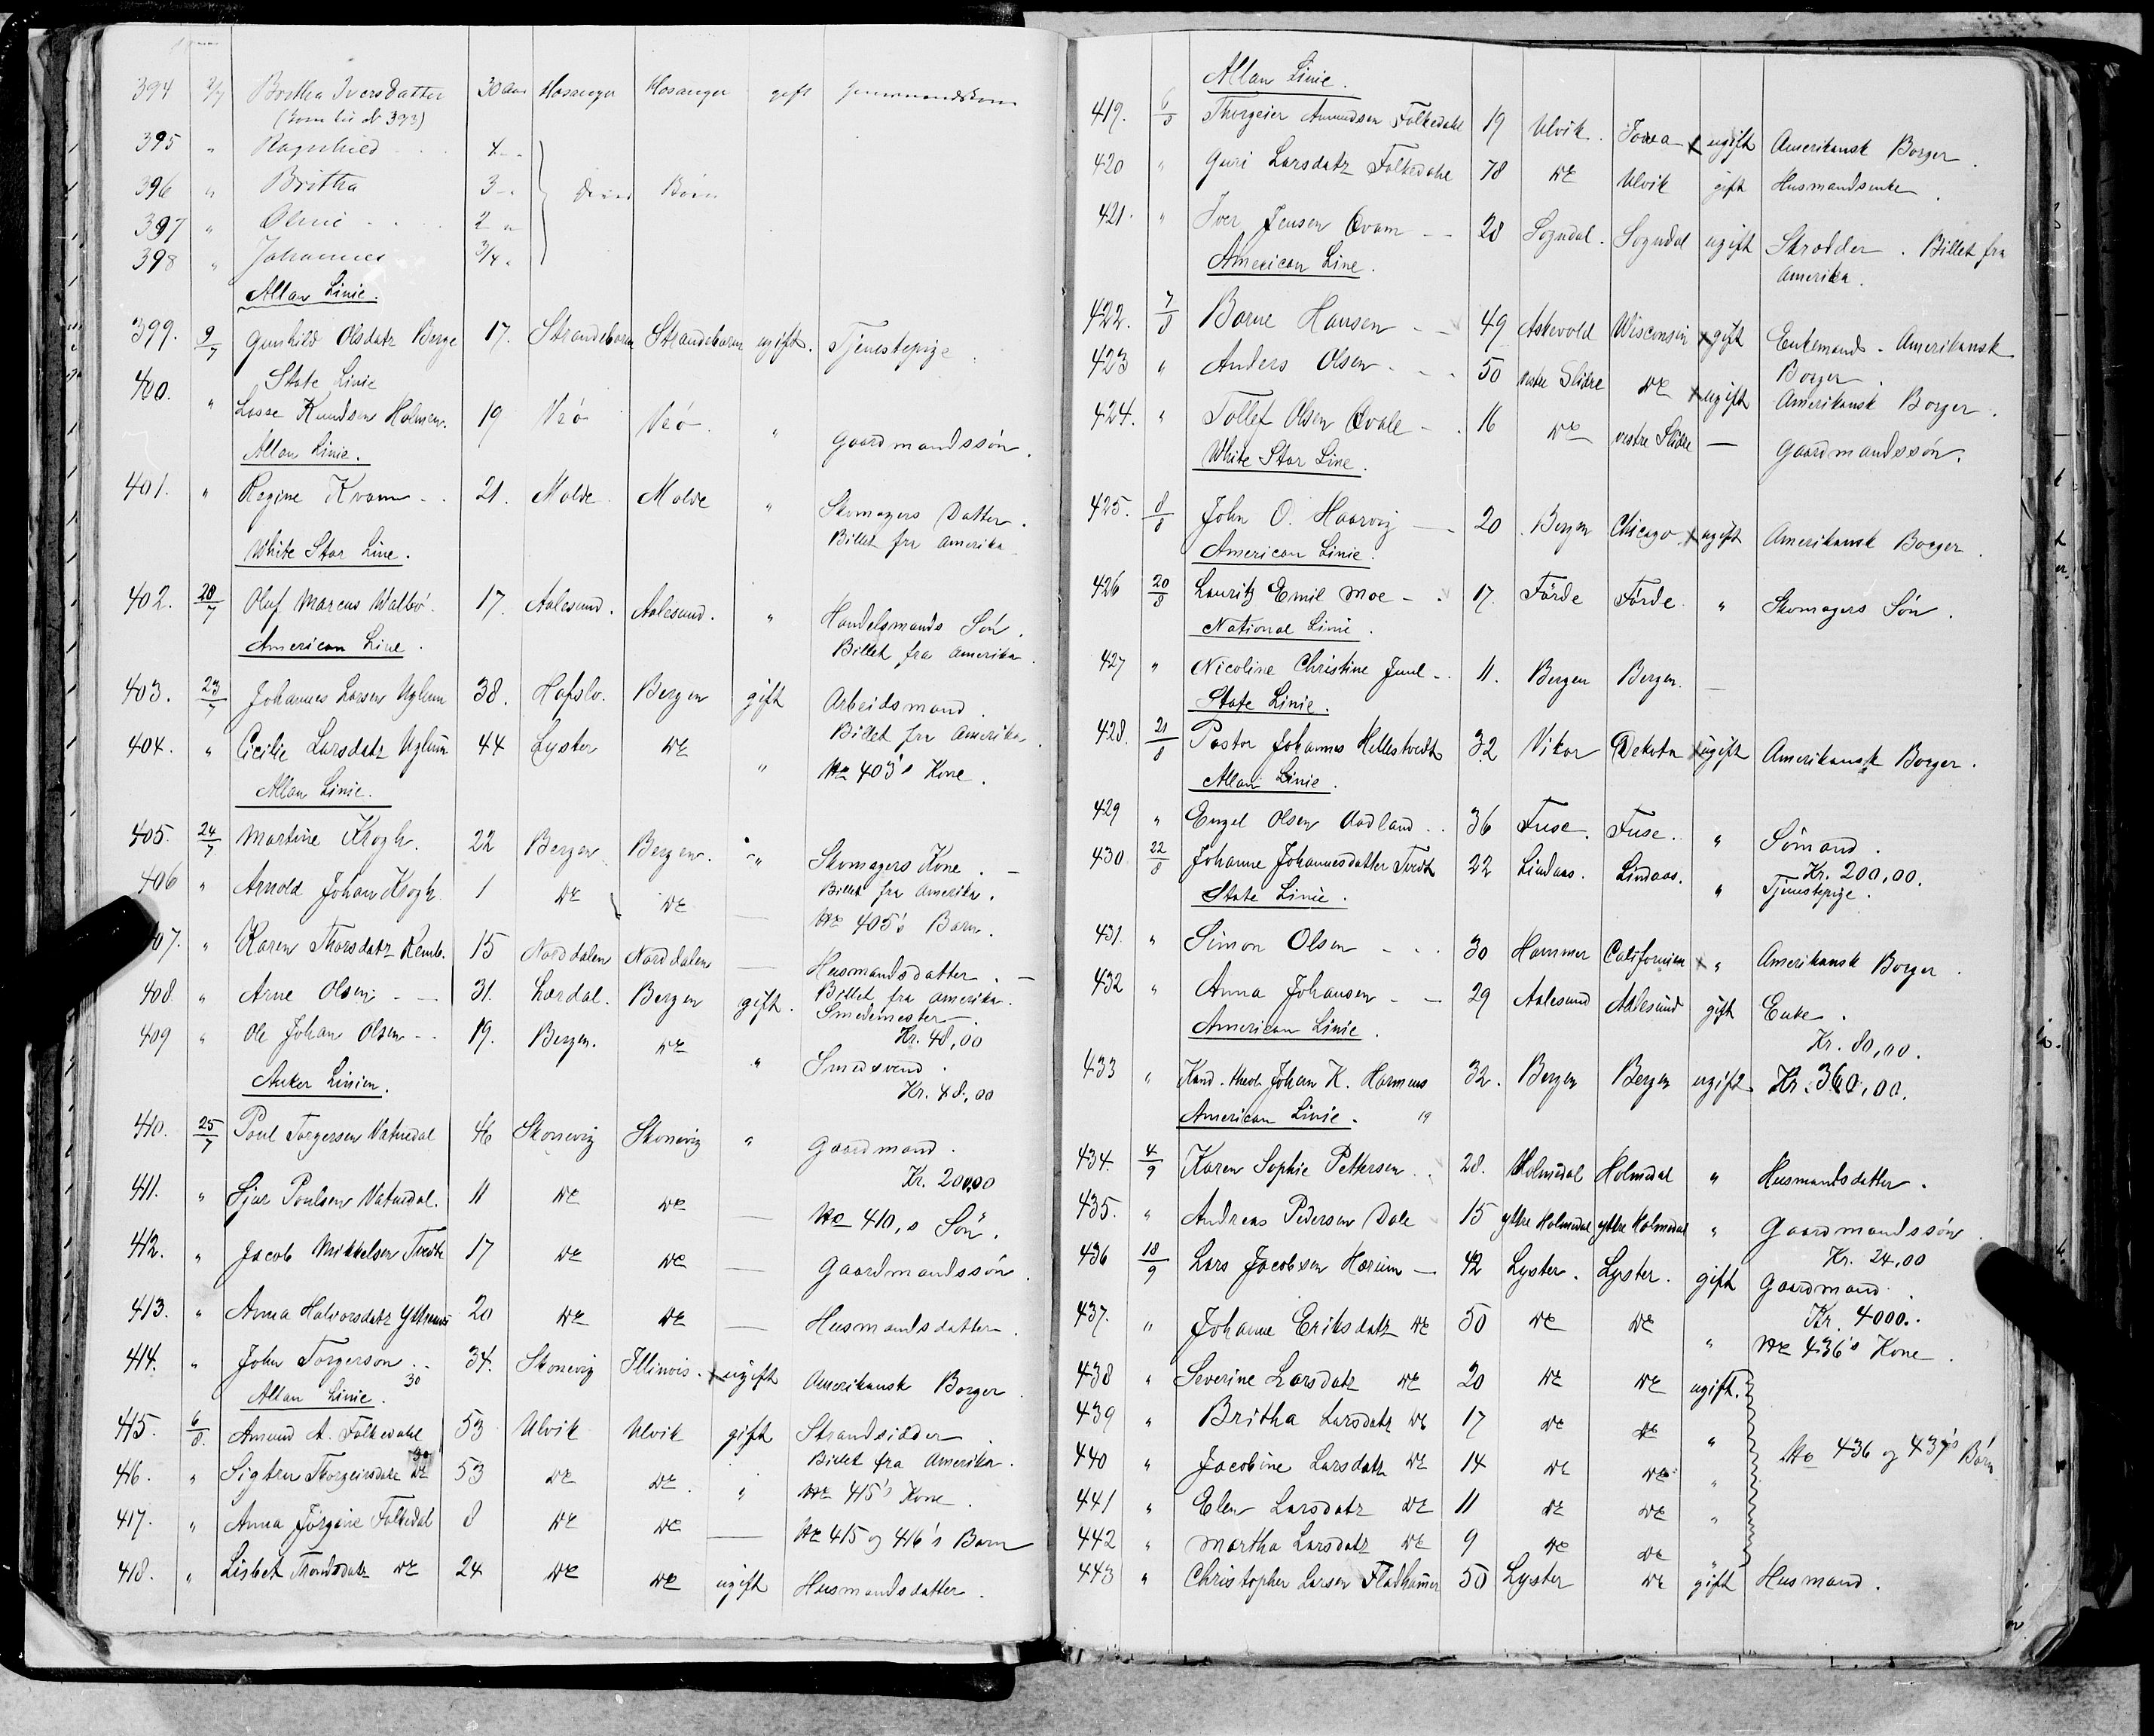 394 2/7 Britha Iversdatter 30 Aar Hosanger Hosanger gift
(kone til No 393)
395 " Ragnhild 4 "
396 " Britha 3 " Deres Børn
397 " Oline 2 "
398 " Johannes 3/4 "
Allan Linie.
399. 9/7 Gunhild Olsdatr Berge 17. Strandebarm Strandebarm ugift. Tjenestepige
State Linie
400. " Lasse Knudsen Holmen. 19 Vrö Vrö " Gaardmandssön.
Allan Linie.
401. " Regine Kvam 21. Molde Molde " Skomagers Datter.
Billet fra Amerika
White Star Line.
402. 20/7 Oluf Marcus Walbö. 17. Aalesund. Aalesund. " Handelsmands Sön.
Billet fra Amerika.
American Line.
403. 23/7 Johannes Larsen Uglum 38. Hafslo. Bergen gift Arbeidsmand.
Billet fra Amerika
404. " Cicilie Larsdatr Uglum 44 Lyster do " No 403's Kone.
Allan Linie.
405. 24/7 Martine Krogh. 22 Bergen Bergen. " Skomagers Kone. —
Billet fra Amerika.
406 " Arnold Johan Krogh 1 do do — No 405's Barn.
07. " Karen Thorsdatr Remb. 15 Norddalen Norddalen — Husmandsdatter. —
Billet fra Amerika.
408 " Arne Olsen - — 31. Lærdal. Bergen gift. Smedemester —
Kr. 48,00
409 " Ole Johan Olsen - - 19. Bergen. do " Smedsvend.
Kr. 48,00
Anker Linien.
410. 25/7 Poul Torgersen Vatnedal 46 Skonevig Skonevig " Gaardmand.
Kr. 200,00
411. " Sjur Poulsen Vatnedal. 11 do do — No 410,s Sön.
412. " Jacob Mikkelsen Tvedt 17 do do — Gaardmandssön.
413. " Anna Halvorsdatr 20 do do — Husmandsdatter.
414. " John Torgerson - - 34. Skonevig Illinois. x ugift Amerikansk Borger
Allan Linie. 30
415. 6/8. Amund A. Folkedahl 53 Ulvik Ulvik gift Strandsidder
Billet fra Amerika.
30
416. " Sigtru Thorgeirsdatr do 53 do do. " No 415's Kone.
417. " Anna Jörgine Folkedal 8 do do — No 415 og 416's Barn
418. " Lisbet Trondsdatr do 24 do do ugift Husmandsdatter.
Allan Linie.
419. 6/8 Thorgeier Amundsen Folkedahl 19 Ulvik. Iowa x ugift Amerikansk Borger.
420 " Guri Larsdatr Folkedahl 78 do Ulvik gift Husmandsenke.
421. " Iver Jensen Qvam - - 28 Sogndal. Sogndal ugift Skrædder. Billet fra
Amerika.
American Line.
422. 7/8 Børne Hansen - — 49 Askevold Wisconsin x gift Enkemand. Amerikansk
Borger.
423 " Anders Olsen - - - 50 vestre Slidre do x ugift Amerikansk Borger.
424. " Tollef Olsen Qvale - . 16 do vestre Slidre — Gaardmandssön.
White Star Line.
425. 8/8 John O. Haarvig — 20 Bergen Chicago x ugift Amerikansk Borger.
American Linie.
426 20/8 Lauritz Emil Moe - . 17. Förde Förde " Skomagers Sön.
National Linie.
427 " Nicoline Christine Juul - . 11. Bergen Bergen. —
State Linie.
428. 21/8 Pastor Johannes Hellestvedt 32 Vikør Dekota x ugift Amerikansk Borger.
Allan Linie.
429 " Engel Olsen Aadland . . 36 Fuse. Fuse. " Sömand.
Kr. 200,00.
430 22/8 Johanne Johannesdatter Tvedt 22 Lindaas. Lindaas. " Tjenstepige.
State Linie.
431. " Simon Olsen - . . 30 Hammer Californien x " Amerikansk Borger.
432 " Anna Johansen - — 29 Aalesund Aalesund gift Enke.
Kr. 80,00.
American Linie.
433 " Kand. theol. Johan K. Harmens 32. Bergen Bergen ugift Kr. 360,00.
American Linie. 19
434. 4/9 Karen Sophie Pettersen . . 28. Holmedal Holmedal " Husmandsdatter.
435. " Andreas Pedersen Dale 15 yttre Holmedal yttre Holmedal " Gaardmandssön
Kr. 24,00
436 18/9 Lars Jacobsen Hærum — 42 Lyster. Lyster. gift Gaardmand.
Kr. 4000..
437. " Johanne Eriksdatr do 50 do do " No 436's Kone.
438 " Severine Larsdatr do 20 do do ugift.
439 " Britha Larsdatr do 17 do do "
440 " Jacobine Larsdatr do 14 do do " No 436 og 437's Börn
441 " Elen Larsdatr do 11 do do "
442 " Martha Larsdatr do 9 do do "
443 " Christopher Larsen Fladhamer 50 Lyster do gift Husmand.